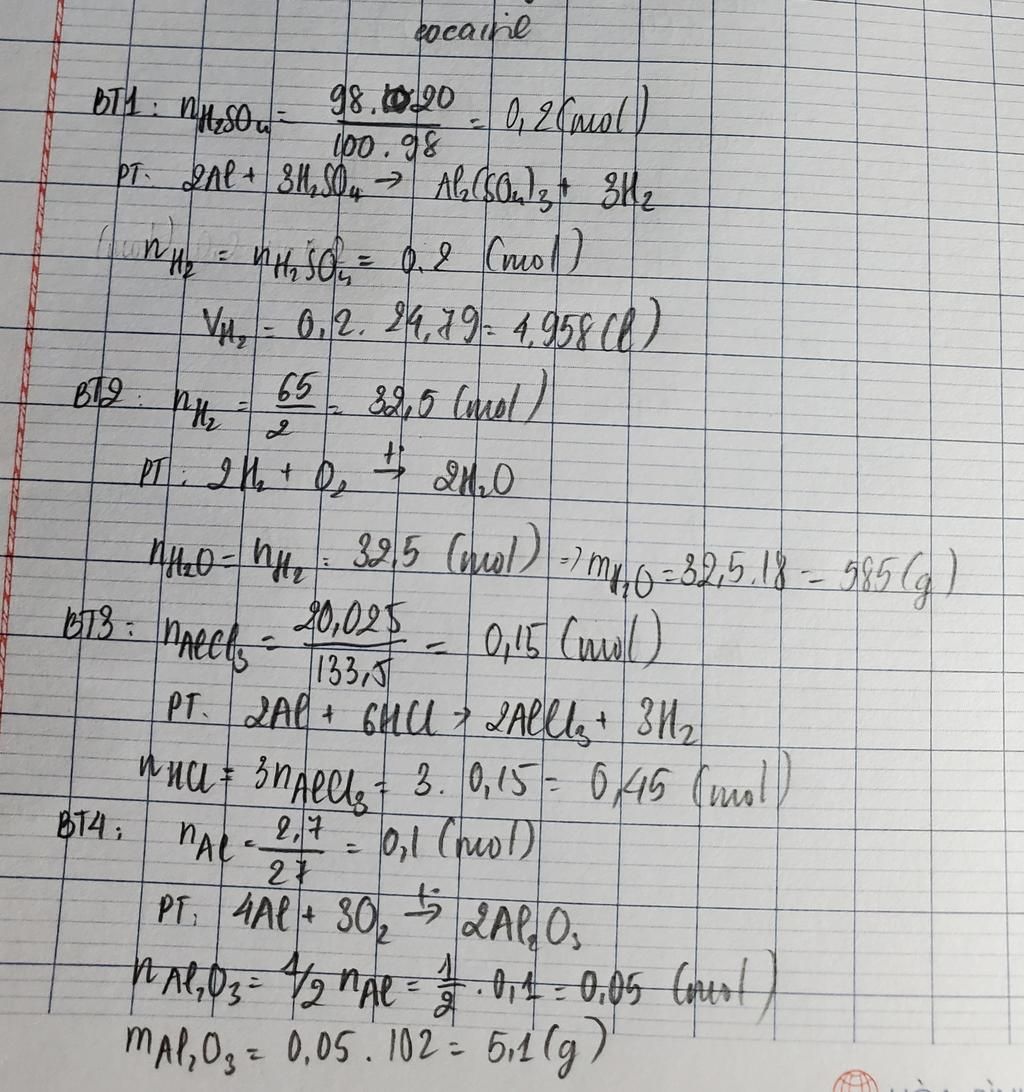 cocaine
BT1: nH₂SO₄ = 98.20/100.98 = 0,2 (mol)
PT: 2Al + 3H₂SO₄ → Al₂(SO₄)₃ + 3H₂
nH₂ = nH₂SO₄ = 0.2 (mol)
VH₂ = 0,2. 24,79 = 4.958 (l)
BT2: nH₂ = 65/2 = 32,5 (mol)
PT: 2H₂ + O₂ →(t) 2H₂O
nH₂O = nH₂ = 32,5 (mol) => mH₂O = 32,5.18 = 585 (g)
BT3: nAlCl₃ = 20,025/133,5 = 0,15 (mol)
PT. 2Al + 6HCl → 2AlCl₃ + 3H₂
nHCl = 3nAlCl₃ = 3. 0,15 = 0,45 (mol)
BT4: nAl = 2,7/27 = 0,1 (mol)
PT: 4Al + 3O₂ →(t) 2Al₂O₃
nAl₂O₃ = 1/2 nAl = 1/2 . 0,1 = 0,05 (mol)
mAl₂O₃ = 0,05 . 102 = 5,1 (g)